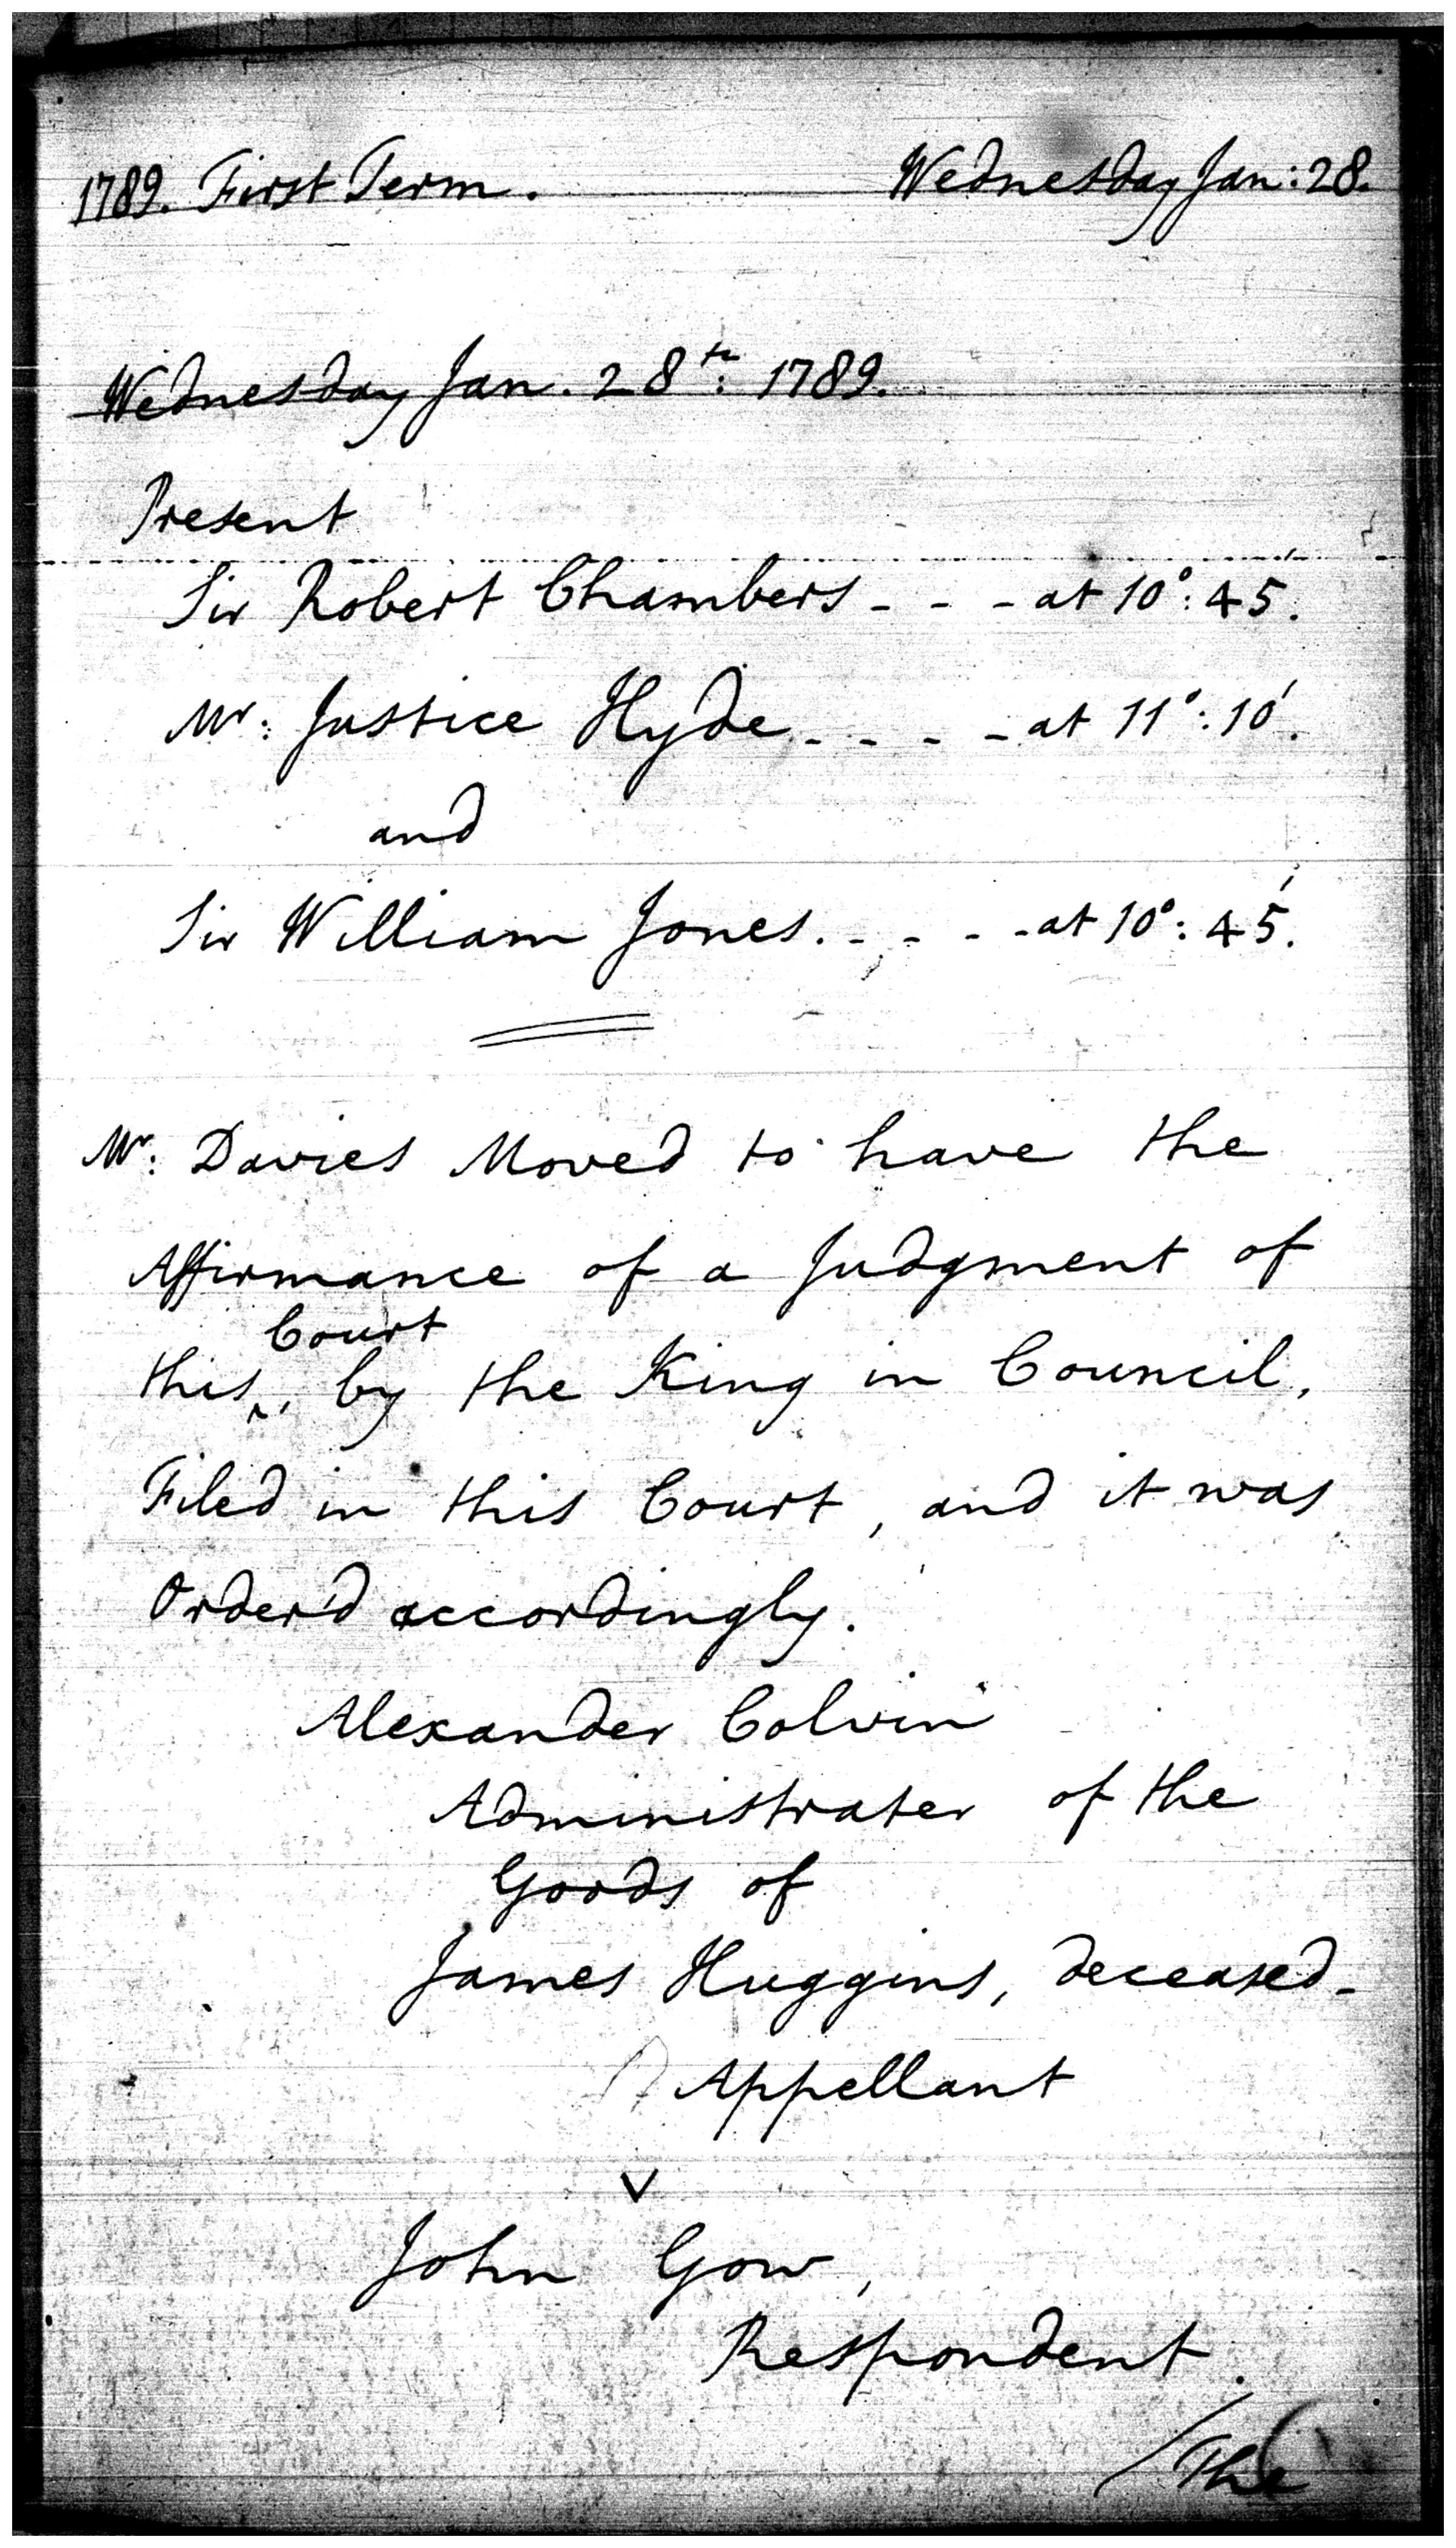 1789. First Term. Wednesday Jan: 28.
Wednesday Jan. 28th: 1789.
Present
Sir Robert Chambers - - - at 10°: 45'.
Mr: Justice Hyde - - - - at 11°: 10'.
and
Sir William Jones. - - - - at 10°: 45'.
Mr: Davies Moved to have the
Affirmance of a Judgment of
Court
this^, by the King in Council,
Filed in this Court, and it was
Order'd accordingly.
Alexander Colvin
Administrater of the
Goods of
James Huggins, deceased-
Appellant
v
John Gow,
Respondent.
/The